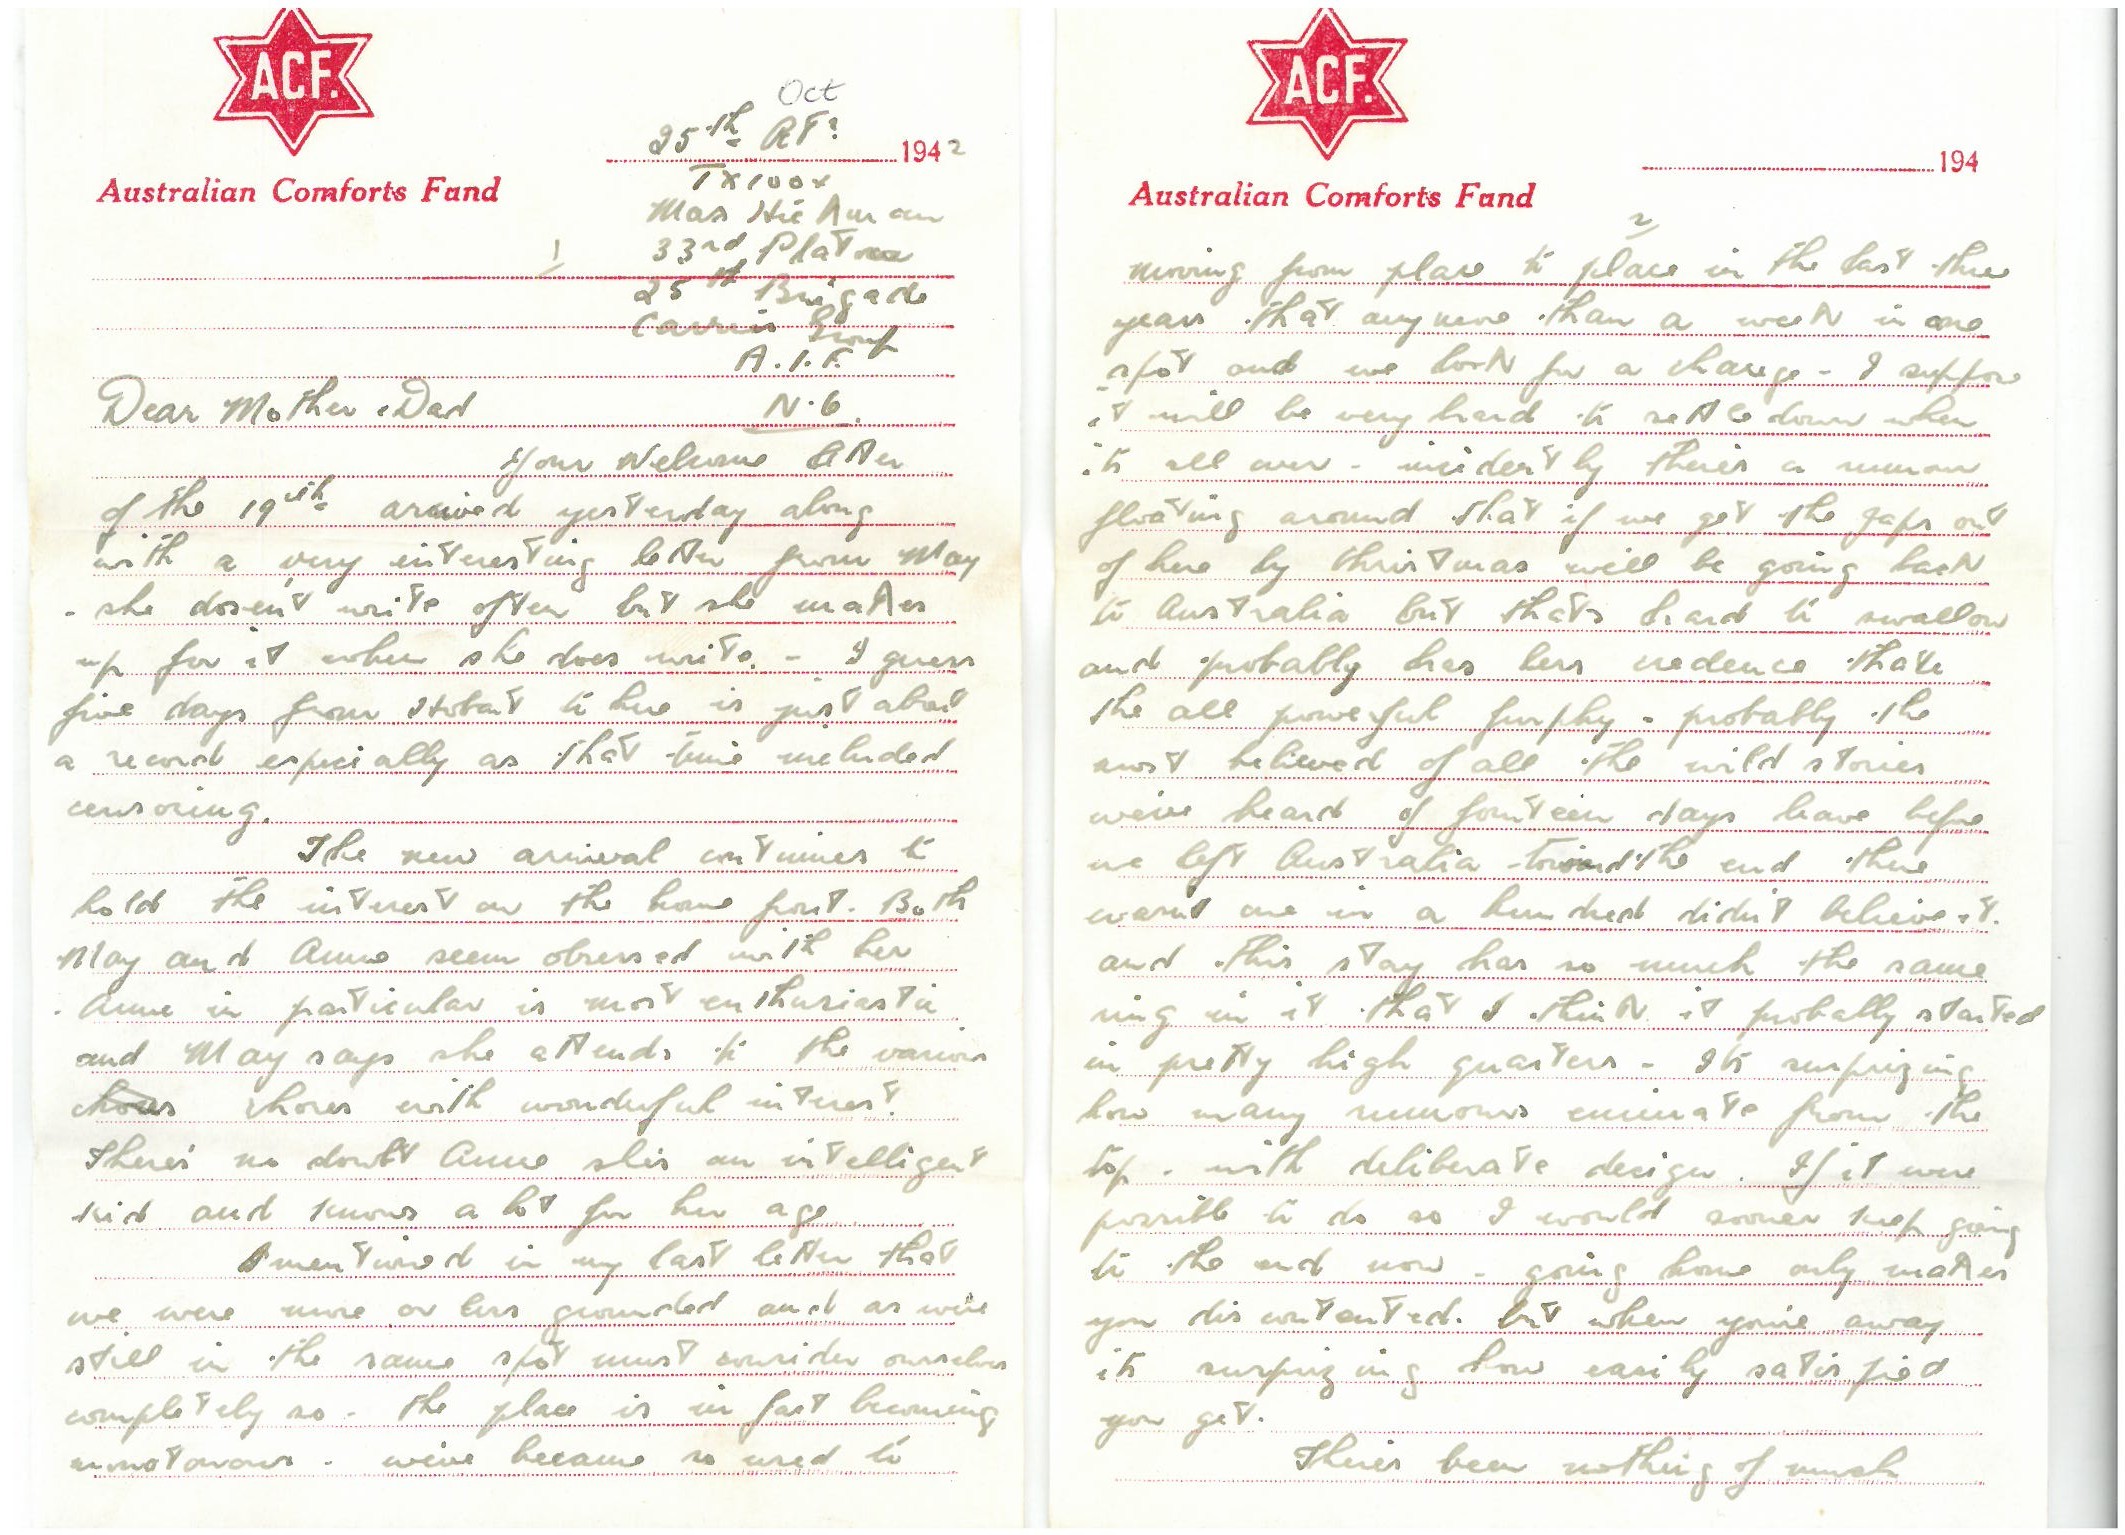 ACF.
Australian Comforts Fund
Oct
25th Oct 1942
TX1004
Max Hickman
33rd Platoon
25th Brigade
Carrier Group
A.I.F.
N.G.
1
Dear Mother & Dad
Your welcome letter
of the 19th arrived yesterday along
with a very interesting letter from May
- she dosen't write often but she makes
up for it when she does write. - I guess
five days from Hobart to here is just about
a record especially as that time included
censoring.
The new arrival continues to
hold the interest on the home front. Both
May and Anne seem obsessed with her
. Anne in particular is most enthusiastic
and May says she attends to the various
chores chores with wonderful interest.
There's no doubt Anne she's an intelligent
kid and knows a lot for her age
I mentioned in my last letter that
we were more or less grounded and as we're
still in the same spot must consider ourselves
completely so - the place is in fact becoming
monotonous - we've became so used to
ACF.
Australian Comforts Fund
194
2
moving from place to place in the last three
years that anymore than a week in one
spot and we look for a change - I suppose
it will be very hard to settle down when
its all over - incidently there's a rumour
floating around that if we get the Japs out
of here by Christmas will be going back
to Australia but thats hard to swallow
and probably has less credence than
the all powerful furphy - probably the
most believed of all the wild stories
we've heard of fourteen days leave before
we left Australia - toward the end there
wasnt one in a hundred didn't believe it.
and this stay has so much the same
ring in it that I think it probably started
in pretty high quarters - Its surprizing
how many rumours eminate from the
top - with deliberate design. If it were
possible to do so I would sooner keep going
to the end now - going home only makes
you discontented. but when you're away
its surprizing how easily satisfied
you get.
There's been nothing of much